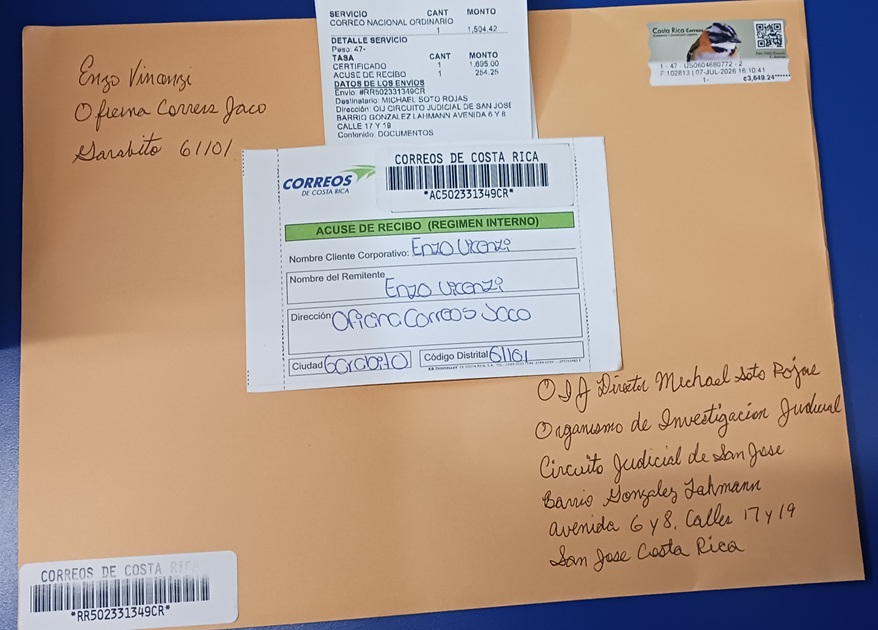 SERVICIO CANT MONTO
CORREO NACIONAL ORDINARIO
1 1,504.42
DETALLE SERVICIO
Peso: 47-
TASA CANT MONTO
CERTIFICADO 1 1,695.00
ACUSE DE RECIBO 1 254.25
DATOS DE LOS ENVIOS
Envío: #RR502331349CR
Destinatario: MICHAEL SOTO ROJAS
Dirección: OIJ CIRCUITO JUDICIAL DE SAN JOSE
BARRIO GONZALEZ LAHMANN AVENIDA 6 Y 8
CALLE 17 Y 19
Contenido: DOCUMENTOS
Costa Rica Correos
1 - 47 - US0604680772 - 2
F:102813 | 07-JUL-2026 16:10:41
1- ¢3,649.24******
Enzo Vincenzi
Oficina Correos Jaco
Garabito 61101
CORREOS
DE COSTA RICA
CORREOS DE COSTA RICA
*AC502331349CR*
ACUSE DE RECIBO (REGIMEN INTERNO)
Nombre Cliente Corporativo: Enzo Vicenzi
Nombre del Remitente Enzo Vicenzi
Dirección Oficina Correos Jaco
Ciudad Garabito Código Distrital 61101
OIJ Director Michael Soto Rojas
Organismo de Investigacion Judicial
Circuito Judicial de San Jose
Barrio Gonzalez Lahmann
avenida 6 y 8, Calles 17 y 19
San Jose Costa Rica
CORREOS DE COSTA RICA
*RR502331349CR*